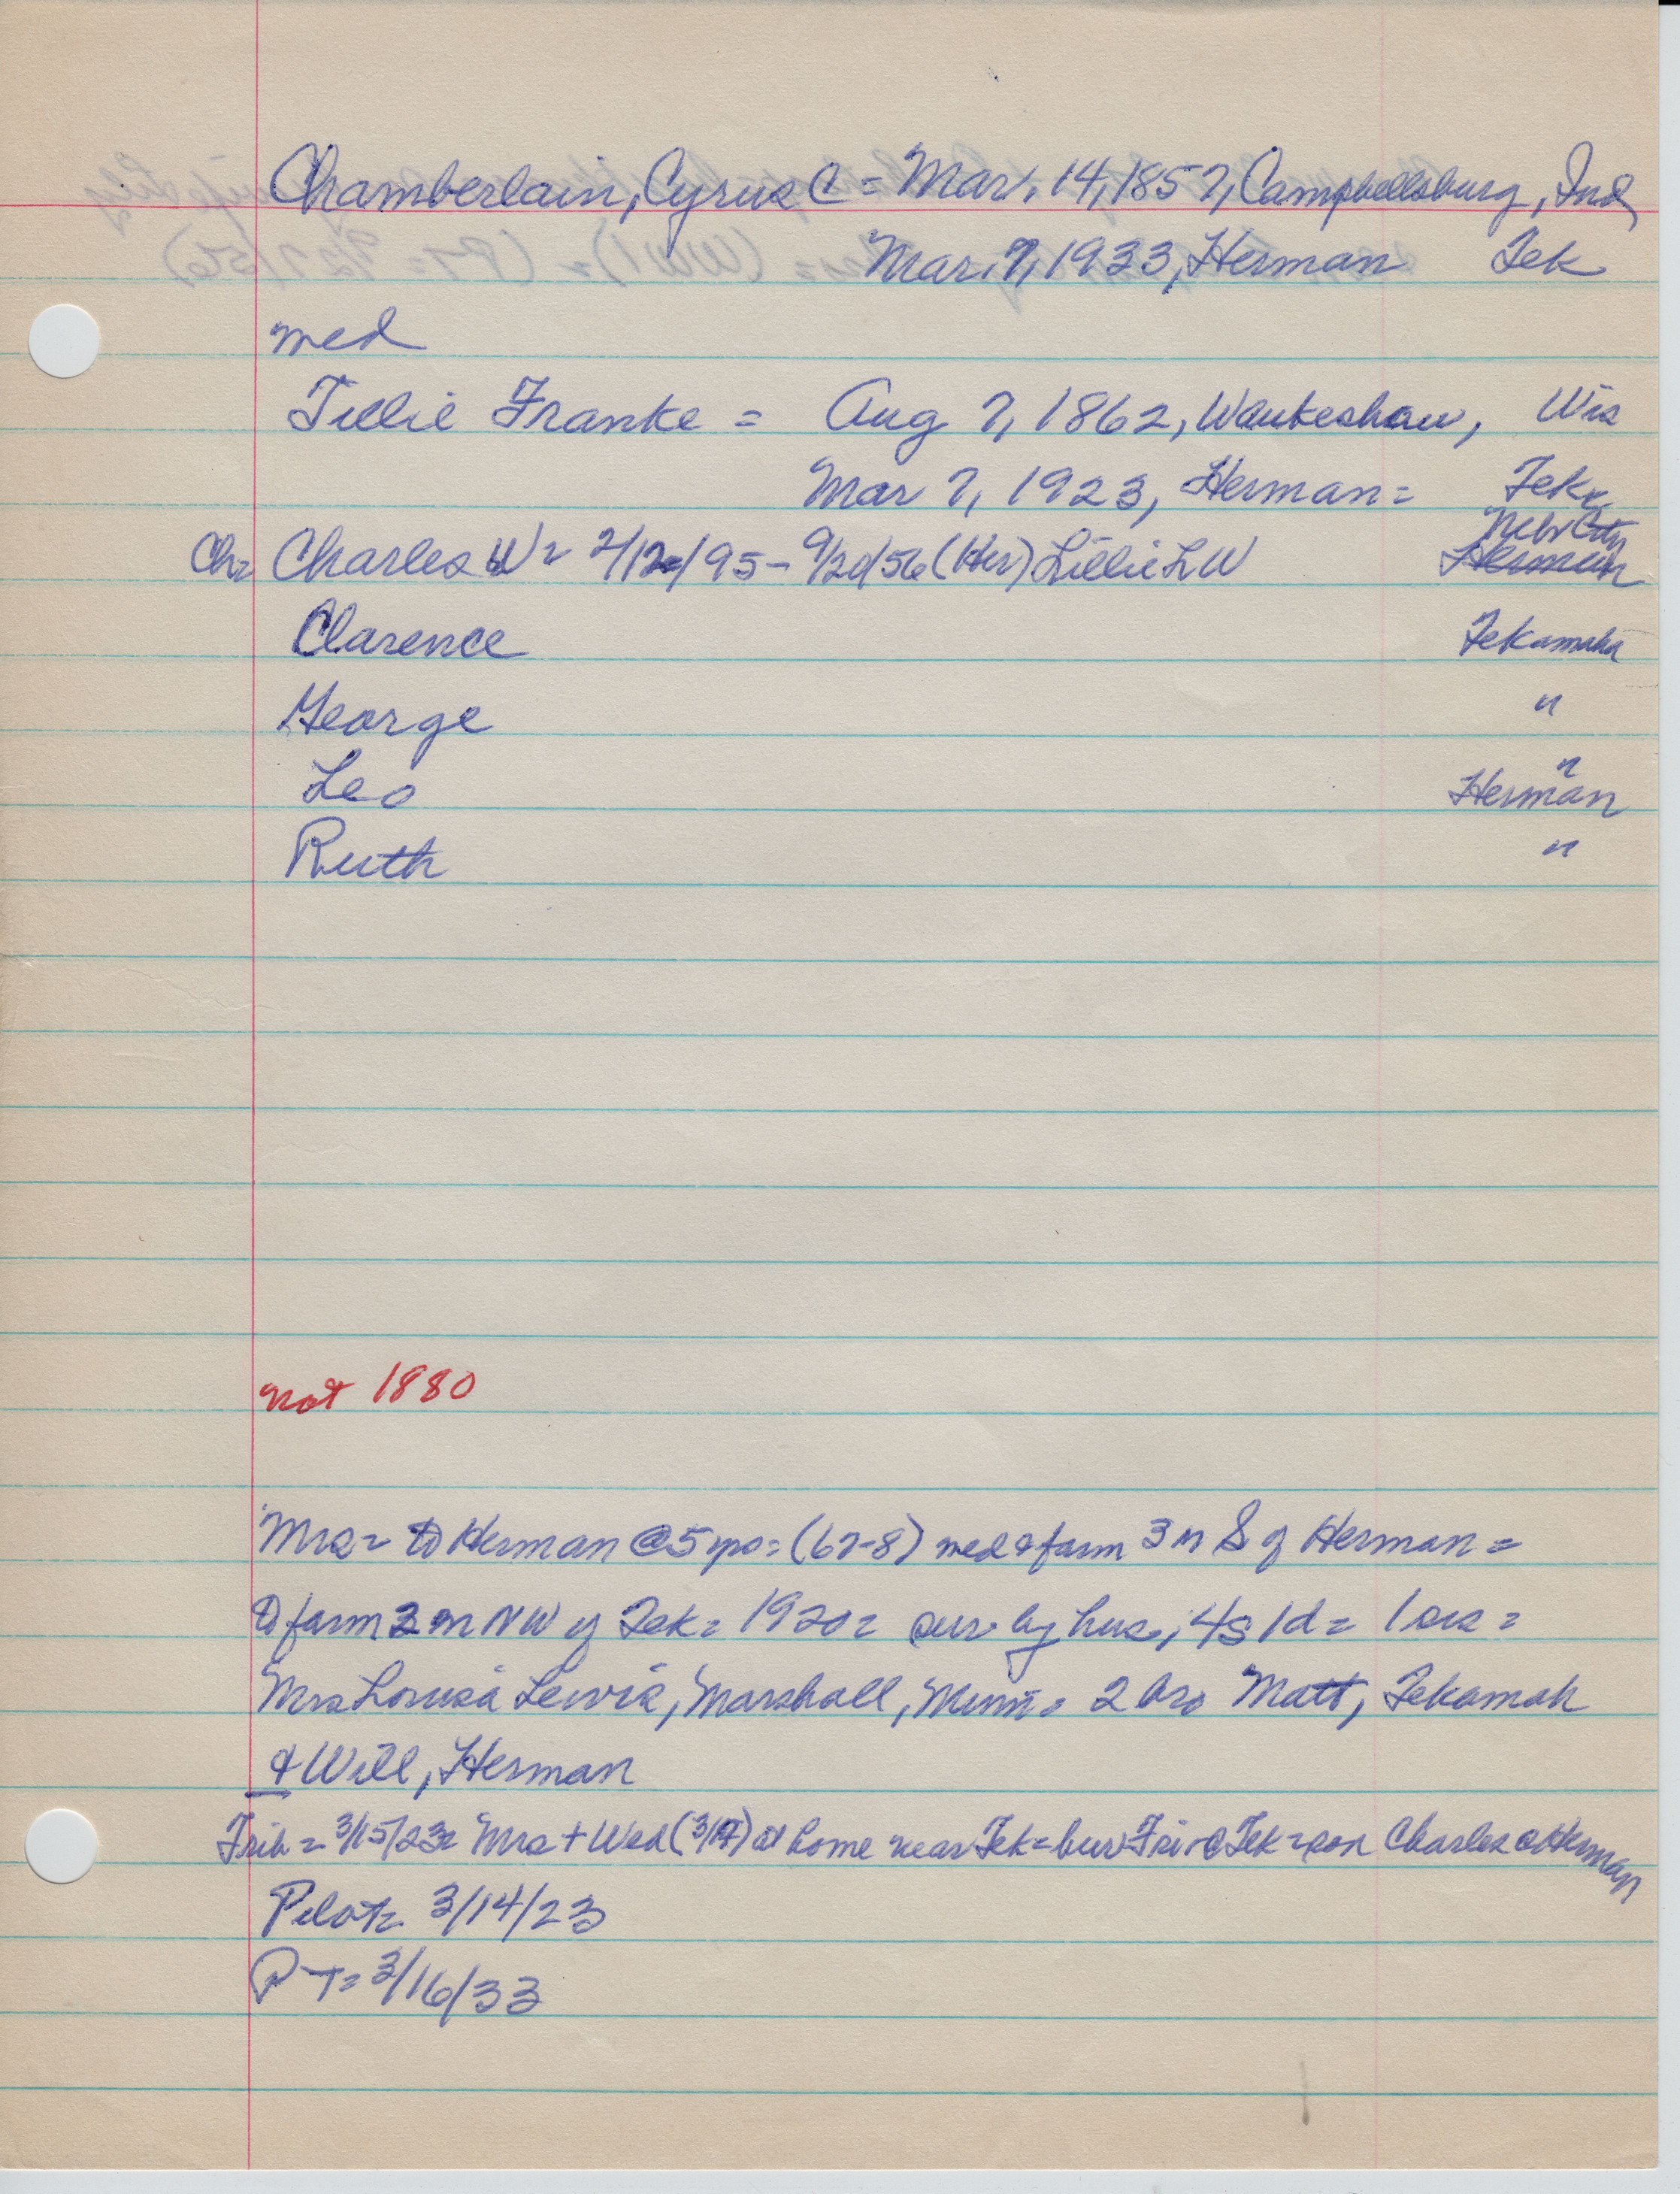 Chamberlain, Cyrus C = Mar. 14, 1857, Campbellsburg, Ind
Mar. 7, 1933, Herman Tek
med
Tillie Franke = Aug 7, 1862, Waukeshaw, Wis
Mar 7, 1923, Herman = Tek
Nebr City
Ch= Charles W= 2/12/95 - 9/20/56 (Her) Lillie L W Herman
Clarence Tekamaha
George "
Leo "
Herman
Ruth "
not 1880
Mrs= to Herman @ 5 yrs= (67-8) med & farm 3 m S of Herman =
to farm 2 m NW of Tek= 1920= sur by hus, 4s 1d= 1 sis =
Mrs Louisa Lewis, Marshall, Minn= 2 bro Matt, Tekamah
& Will, Herman
Trib = 3/15/23= Mrs + Wed (3/14) at home near Tek = bur Fri @ Tek = son Charles @ Herman
Pilot= 3/14/23
PT= 3/16/33